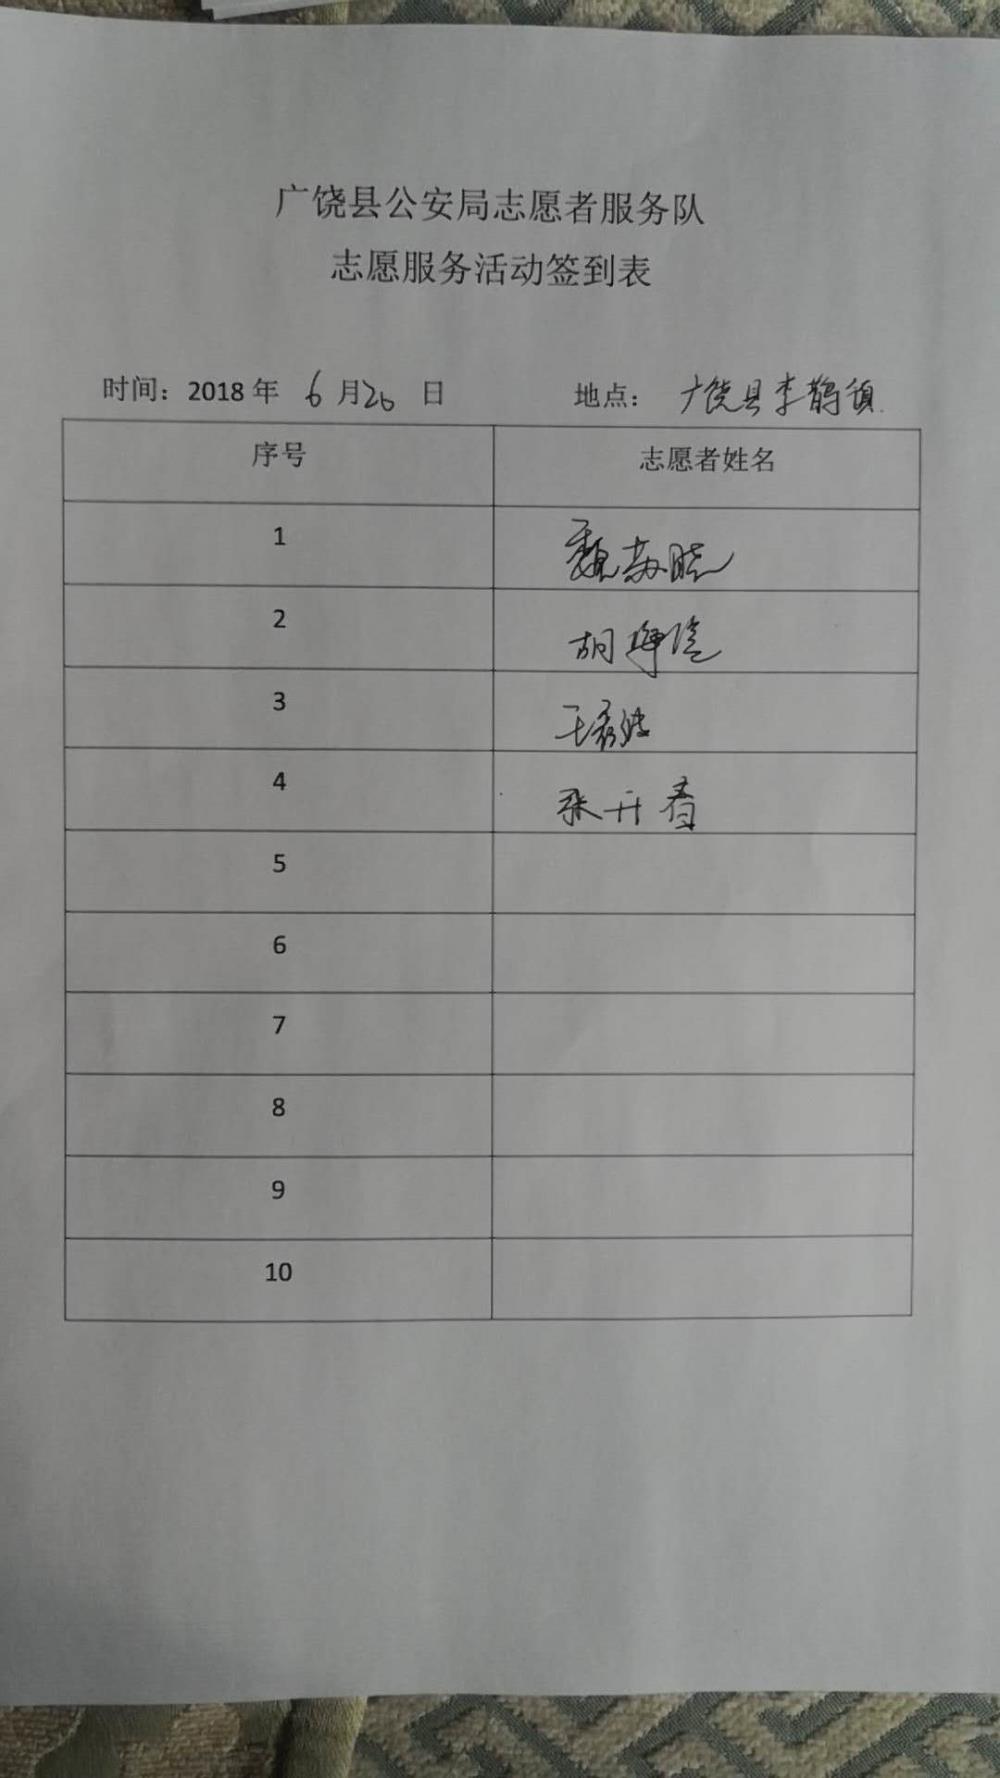 广饶县公安局志愿者服务队
志愿服务活动签到表
时间：2018年 6月20 日 地点： 广饶县李鹊镇
序号 志愿者姓名
1 魏苏晓
2
3
4 张开春
5
6
7
8
9
10